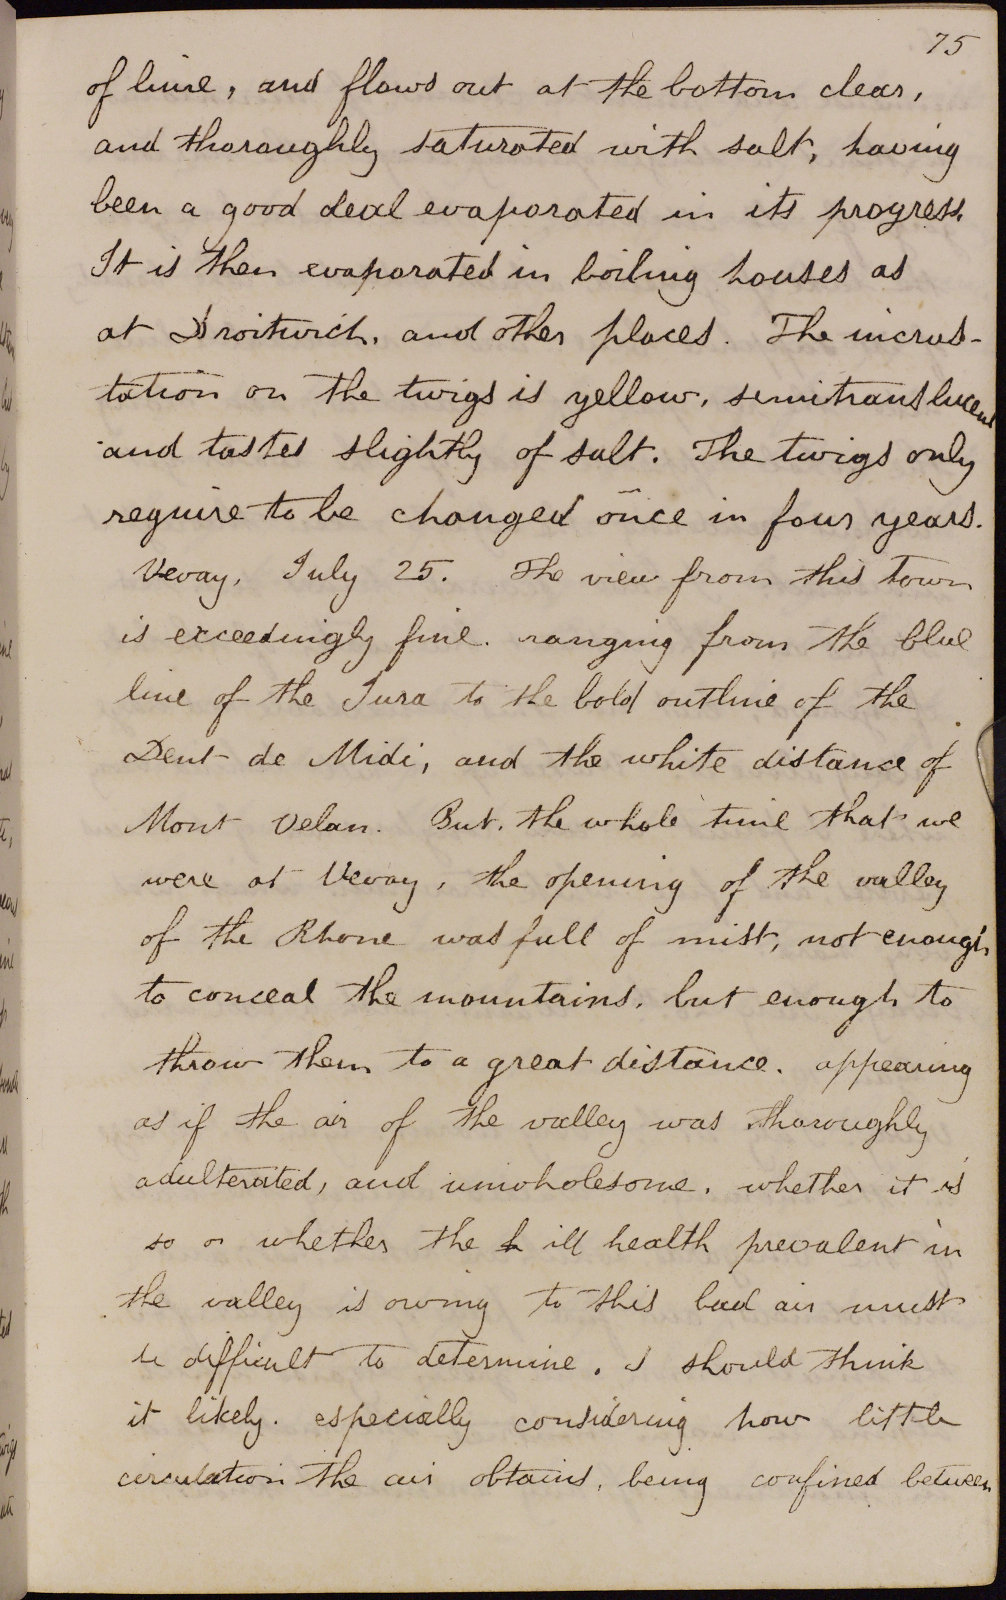 75
of lime, and flows out at the bottom clear,
and thoroughly saturated with salt, having
been a good deal evaporated in its progress.
It is then evaporated in boiling houses as
at Droitwich, and other places. The incrus-
tation on the twigs is yellow, semitranslucent
and tastes slightly of salt. The twigs only
require to be changed once in four years.
Vevay, July 25. The view from this town
is exceedingly fine. ranging from the blue
line of the Jura to the bold outline of the
Dent de Midi, and the white distance of
Mont Velan. But, the whole time that we
were at Vevay, the opening of the valley
of the Rhone was full of mist, not enough
to conceal the mountains, but enough to
throw them to a great distance. appearing
as if the air of the valley was thoroughly
adulterated, and unwholesome. whether it is
so or whether the h ill health prevalent in
the valley is owing to this bad air must
be difficult to determine. I should think
it likely. especially considering how little
circulation the air obtains, being confined between